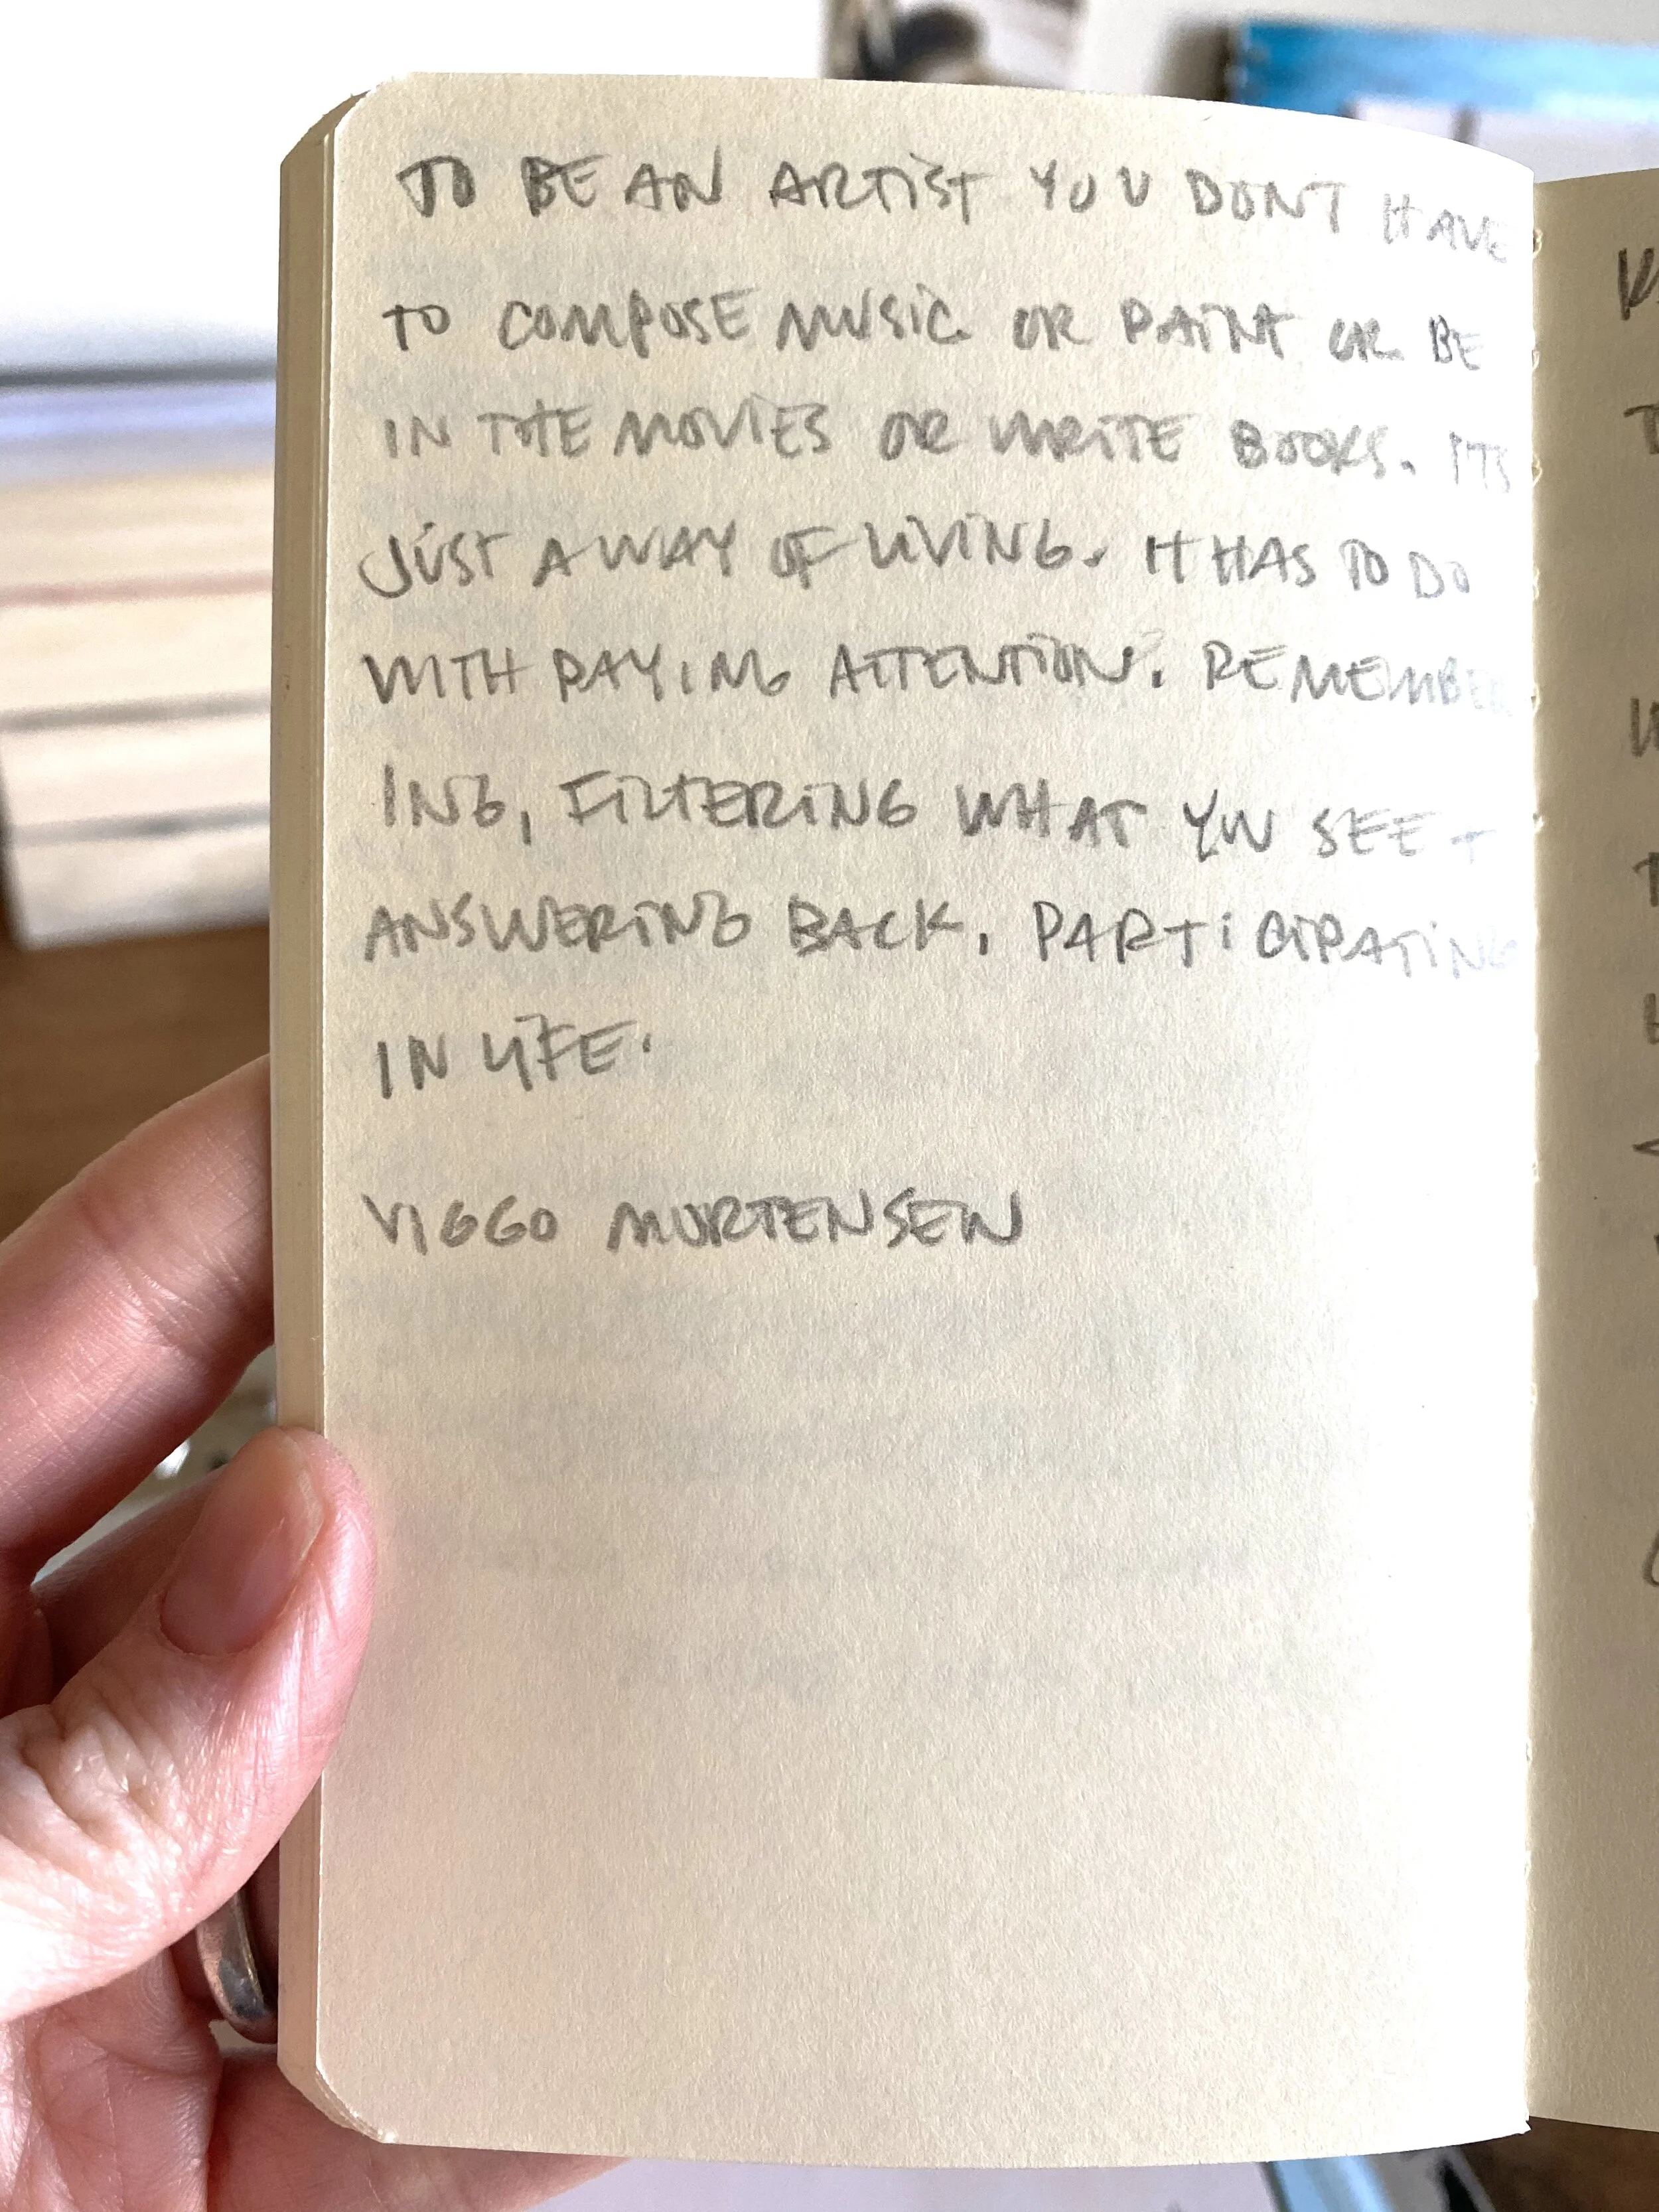 TO BE AN ARTIST YOU DONT HAVE
TO COMPOSE MUSIC OR PAINT OR BE
IN THE MOVIES OR WRITE BOOKS. ITS
JUST A WAY OF LIVING. IT HAS TO DO
WITH PAYING ATTENTION. REMEMBER
ING, FILTERING WHAT YOU SEE +
ANSWERING BACK, PARTICIPATING
IN LIFE.
VIGGO MORTENSEN